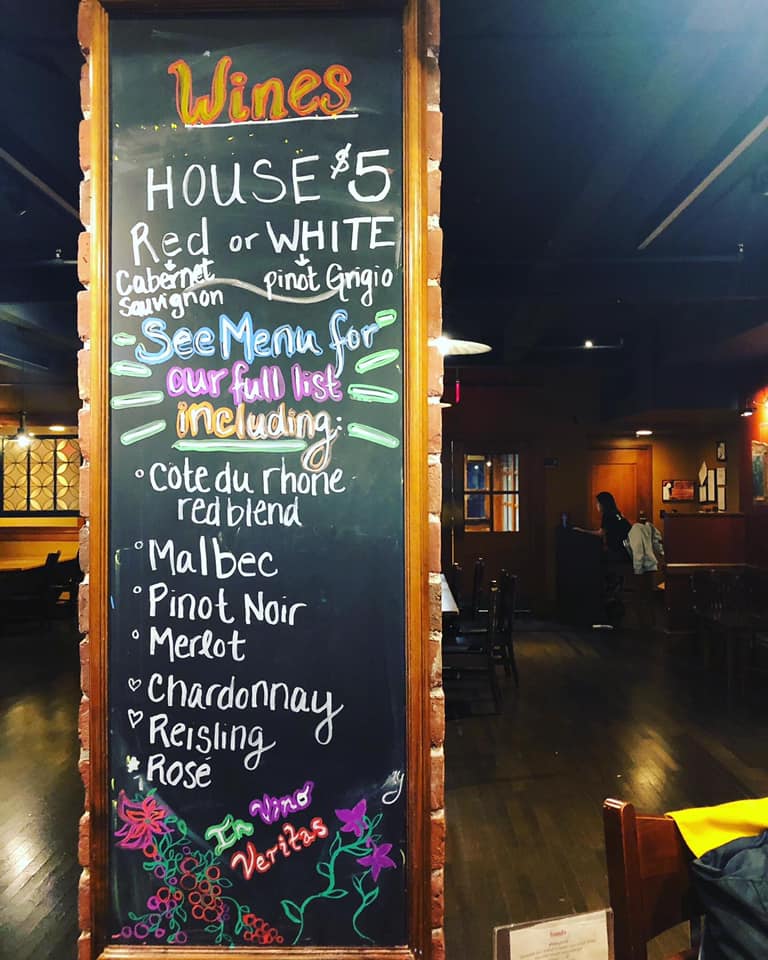 Wines
HOUSE $5
Red or WHITE
Cabernet Sauvignon
pinot Grigio
See Menu for
our full list
including:
Cote du rhone
red blend
Malbec
Pinot Noir
Merlot
Chardonnay
Reisling
Rosé
In Vino
Veritas